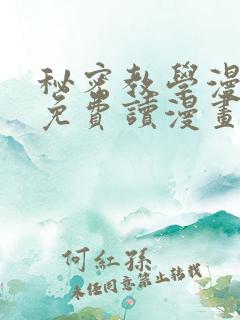 秘密教學漫
免費讀漫畫
何紅孫
未经同意禁止转载